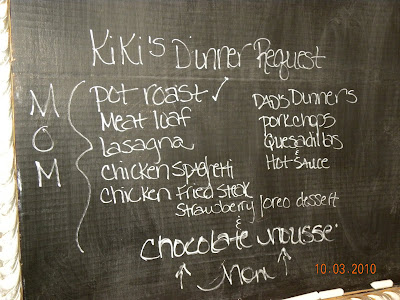 KiKi's Dinner Request
MOM
Pot roast ✓
Meat loaf
Lasagna
Chicken Spaghetti
Chicken Fried Steak
DAD's Dinner's
Porkchops
Quesadillas
&
Hot Sauce
Strawberry / oreo dessert
&
chocolate mousse
↑ Mom ↑
10.03.2010